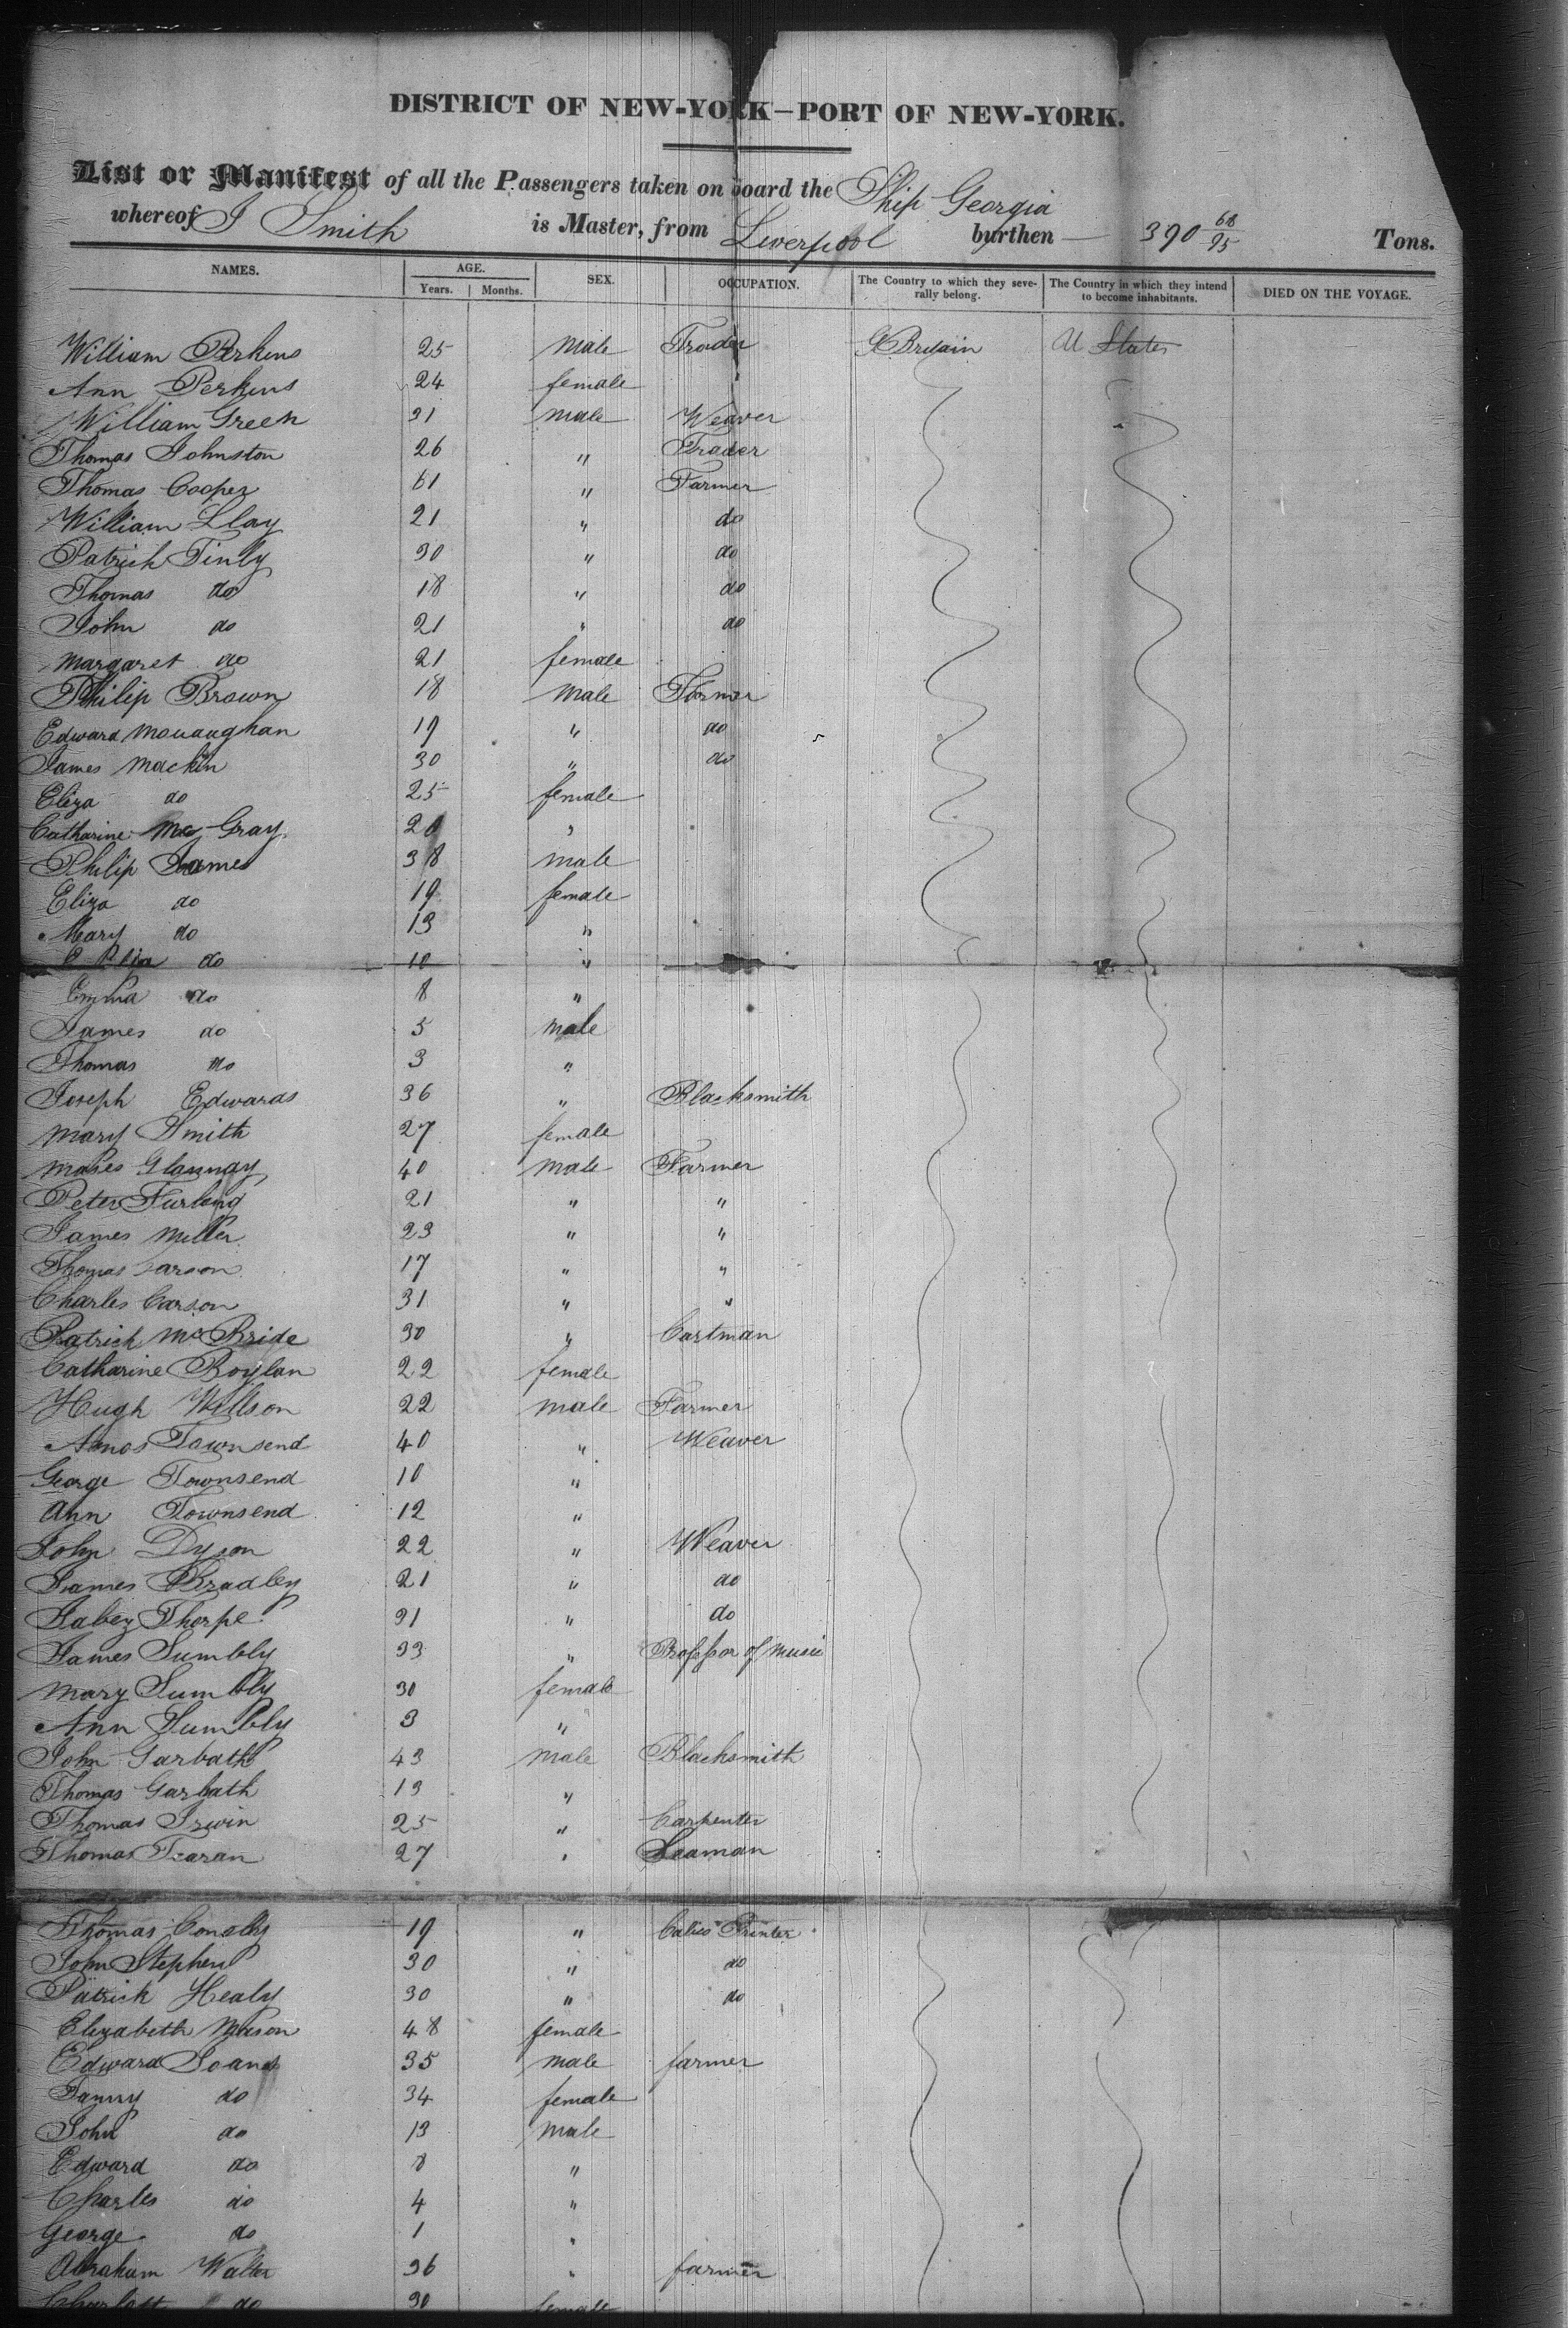 DISTRICT OF NEW-YORK—PORT OF NEW-YORK.
List or Manifest of all the Passengers taken on board the Ship Georgia
whereof J Smith is Master, from Liverpool burthen — 390 68/95 Tons.
NAMES. AGE. SEX. OCCUPATION. The Country to which they severally belong. The Country in which they intend to become inhabitants. DIED ON THE VOYAGE.
Years. Months.
William Perkins 25 male Trader G Britain U States
Ann Perkins 24 female
William Green 31 male Weaver
Thomas Johnston 26 " Trader
Thomas Cooper 61 " Farmer
William Llay 21 " do
Patrick Finly 30 " do
Thomas do 18 " do
John do 21 " do
Margaret do 21 female
Philip Brown 18 male Farmer
Edward Monaughan 19 " do
James Mackin 30 " do
Eliza do 25 female
Catharine Mc Gray 20 "
Philip James 38 male
Eliza do 19 female
Mary do 13 "
do 10 "
Emma do 8 "
James do 5 male
Thomas do 3 "
Joseph Edwards 36 " Blacksmith
Mary Smith 27 female
Moses 40 male Farmer
Peter Furlong 21 " "
James Miller 23 " "
Thomas Carson 17 " "
Charles Carson 31 " "
Patrick McBride 30 " Cartman
Catharine Boylan 22 female
Hugh Willson 22 male Farmer
Amos Townsend 40 " Weaver
George Townsend 10 "
Ann Townsend 12 "
John Dyson 22 " Weaver
James Bradley 21 " do
Jabez Thorpe 31 " do
James Sumbly 33 " Professor of Music
Mary Sumbly 30 female
Ann Sumbly 3 "
John Garbath 43 male Blacksmith
Thomas Garbath 13 "
Thomas Irwin 25 " Carpenter
Thomas Fearan 27 " Seaman
Thomas Conolly 19 " Calico Printer
John Stephen 30 " do
Patrick Healy 30 " do
Elizabeth Mason 48 female
Edward Soans 35 male farmer
Fanny do 34 female
John do 13 male
Edward do 8 "
Charles do 4 "
George do 1 "
Abraham Walter 36 " farmer
Charlott do 30 female